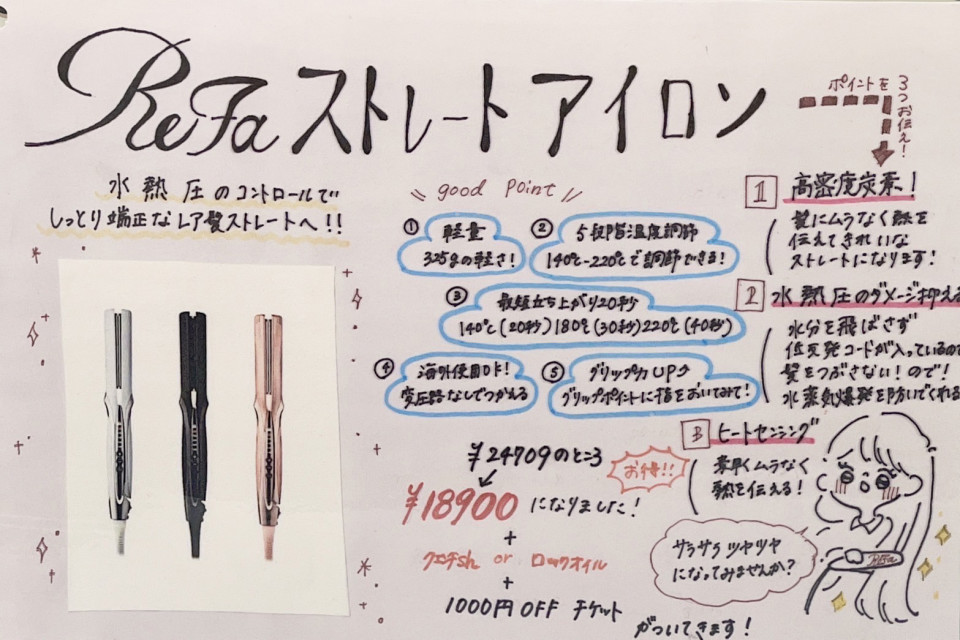 ReFa ストレートアイロン
ポイントを
3つお伝え!
水熱圧のコントロールで
しっとり端正なレア髪ストレートへ!!
good Point
① 軽量
325gの軽さ!
② 5段階温度調節
140℃-220℃で調節できる!
③ 最短立ち上がり20秒
140℃(20秒)180℃(30秒)220℃(40秒)
④ 海外使用OK!
変圧路なしでつかえる
⑤ グリップ力UP⤴
グリップポイントに指をおいてみて!
¥24709のところ
お得!!
¥18900になりました!
+
クエチsh or ロックオイル
+
1000円OFF チケット
がついてきます!
1 高密度炭素!
髪にムラなく熱を
伝えてきれいな
ストレートになります!
2 水熱圧のダメージ抑える
水分を飛ばさず
低反発コードが入っているの
髪をつぶさない!ので!
水蒸気爆発を防いでくれる
3 ヒートセンシング
素早くムラなく
熱を伝える!
サラサラツヤツヤ
になってみませんか?
ReFa